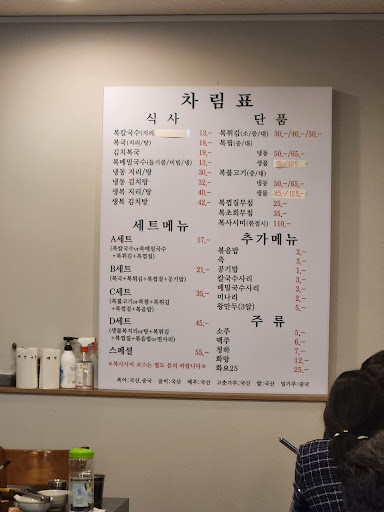 차림표
식사
복칼국수(지리 13.-
복국(지리/탕) 18.-
김치복국 19.-
복메밀국수(들기름/비빔/냉) 13.-
냉동 지리/탕 30.-
냉동 김치탕 32.-
생복 지리/탕 40.-
생복 김치탕 42.-
세트메뉴
A세트 17.-
(복칼국수or복메밀국수
+복튀김+복껍질)
B세트 21.-
(복국+복튀김+복껍질+공기밥)
C세트 35.-
(복불고기or복찜+복튀김
+복껍질+볶음밥)
D세트 45.-
(생물복지리or탕+복튀김
+복껍질+볶음밥or면사리)
스페셜 55.-
※복사시미 코스는 별도 문의 바랍니다※
단품
복튀김(소/중/대) 30.-/40.-/50.-
복찜(중/대)
냉동 50.-/65.-
생물
복불고기(중/대)
냉동 50.-/65.-
생물 85.-/125.-
복껍질무침 25.-
복초회무침 35.-
복사시미(한접시) 110.-
추가메뉴
볶음밥 2.-
죽 3.-
공기밥 1.-
칼국수사리 3.-
메밀국수사리 3.-
미나리 5.-
왕만두(3알) 5.-
주류
소주 5.-
맥주 6.-
청하 7.-
화랑 12.-
화요25 25.-
복어:국산,중국 갈비:국산 배추:국산 고춧가루:국산 쌀:국산 밀가루:중국